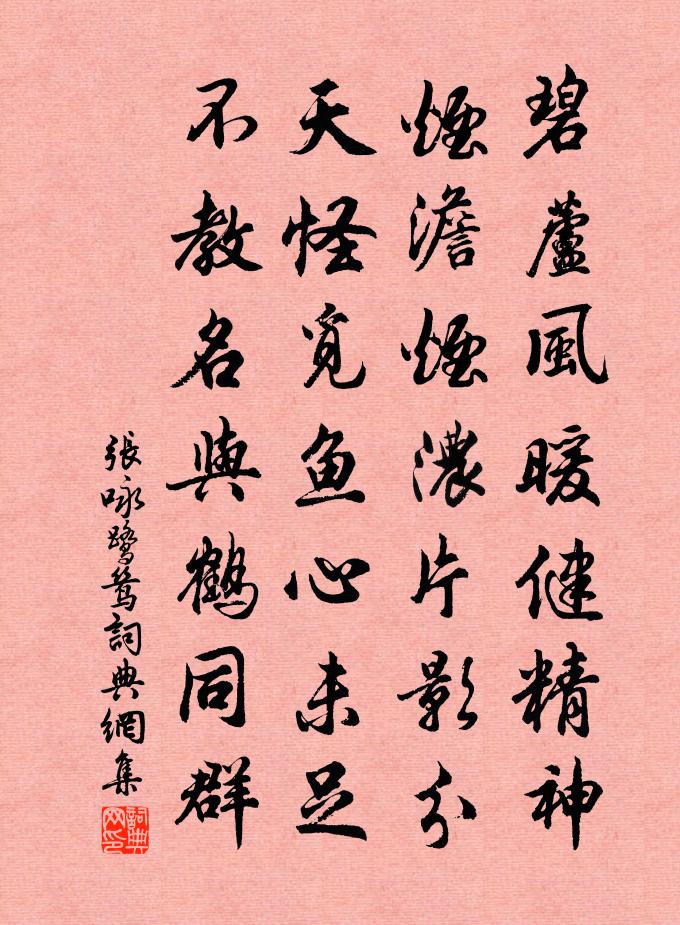 碧蘆風暖健精神
煙澹煙濃片影分
天怪覓魚心未足
不教名與鶴同群
張咏鷺鷥詞典網集
詞典网印